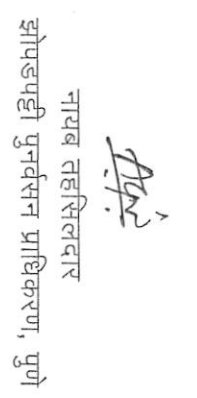 नायब तहसिलदार
झोपडपट्टी पुनर्वसन प्राधिकरण, पुणे